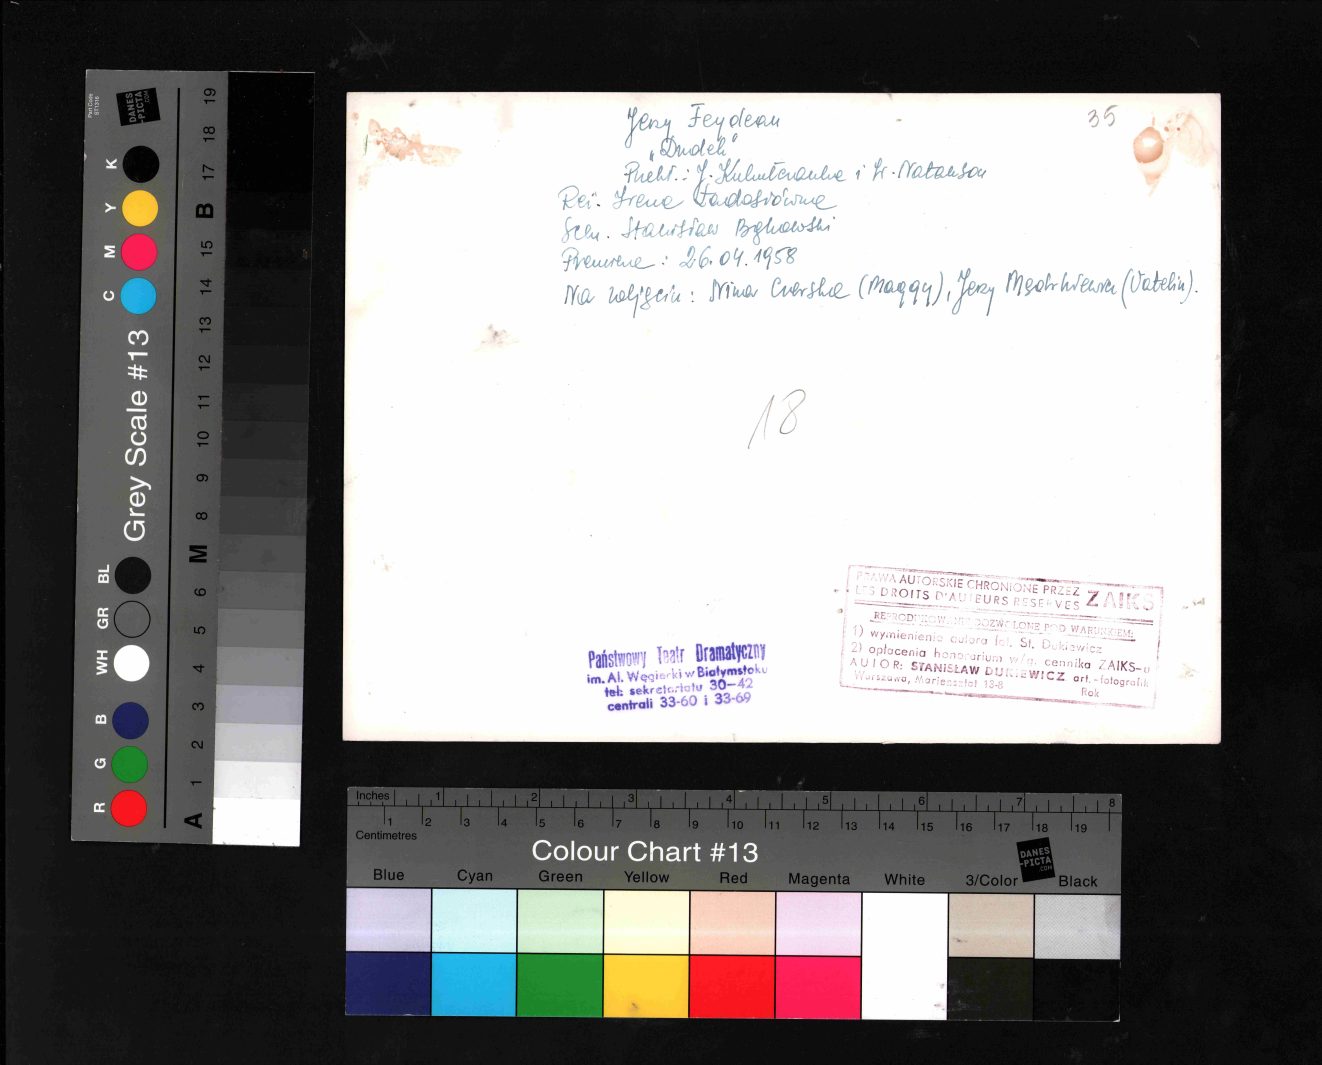 35
Jerzy Feydeau
„Dudek"
Przekł.: J. i W. Natanson
Reż. Irena Ładosiówna
Scen. Stanisław Bąkowski
Premiera: 26.04.1958
Na zdjęciu: Nina Czerska (Maggy), Jerzy (Vatelin).
18
PRAWA AUTORSKIE CHRONIONE PRZEZ ZAIKS
LES DROITS D'AUTEURS RESERVES
REPRODUKOWANIE DOZWOLONE POD WARUNKIEM:
1) wymienienia autora fot. St. Dukiewicz
2) opłacenia honorarium w/g. cennika ZAIKS-u
AUTOR: STANISŁAW DUKIEWICZ art.-fotografik
Warszawa, Mariensztat 13-8 Rok
Państwowy Teatr Dramatyczny
im. Al. Węgierki w Białymstoku
tel: sekretariatu 30-42
centrali 33-60 i 33-69
Part Code
ST1316
DANES
-PICTA
.COM
Grey Scale #13
K
Y
M
C
BL
GR
WH
B
G
R
19
18
17
B
15
14
13
12
11
10
9
8
M
6
5
4
3
2
1
A
Inches 1 2 3 4 5 6 7 8
1 2 3 4 5 6 7 8 9 10 11 12 13 14 15 16 17 18 19
Centimetres
Colour Chart #13
DANES
-PICTA
.COM
Blue Cyan Green Yellow Red Magenta White 3/Color Black